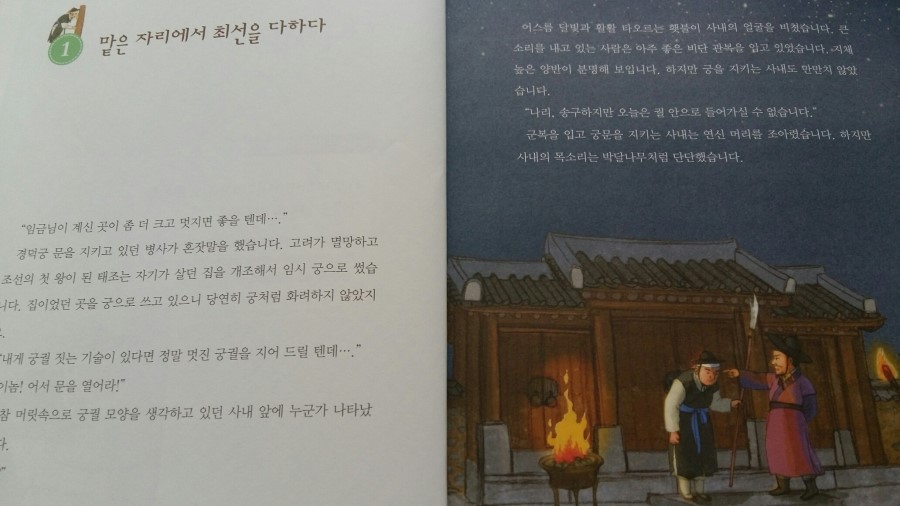 1
맡은 자리에서 최선을 다하다
“임금님이 계신 곳이 좀 더 크고 멋지면 좋을 텐데….”
경덕궁 문을 지키고 있던 병사가 혼잣말을 했습니다. 고려가 멸망하고
조선의 첫 왕이 된 태조는 자기가 살던 집을 개조해서 임시 궁으로 썼습
니다. 집이었던 곳을 궁으로 쓰고 있으니 당연히 궁처럼 화려하지 않았지
요.
“내게 궁궐 짓는 기술이 있다면 정말 멋진 궁궐을 지어 드릴 텐데….”
이놈! 어서 문을 열어라!”
참 머릿속으로 궁궐 모양을 생각하고 있던 사내 앞에 누군가 나타났
다.
어스름 달빛과 활활 타오르는 횃불이 사내의 얼굴을 비쳤습니다. 큰
소리를 내고 있는 사람은 아주 좋은 비단 관복을 입고 있었습니다. 지체
높은 양반이 분명해 보입니다. 하지만 궁을 지키는 사내도 만만치 않았
습니다.
“나리, 송구하지만 오늘은 궐 안으로 들어가실 수 없습니다.”
군복을 입고 궁문을 지키는 사내는 연신 머리를 조아렸습니다. 하지만
사내의 목소리는 박달나무처럼 단단했습니다.